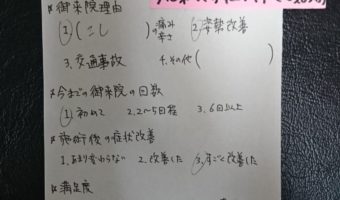 ※御来院理由
①(こし)の痛み 辛さ ②姿勢改善
3.交通事故 4.その他(
※今までの御来院の回数
①初めて 2.2〜5回程 3.6回以上
※施術後の症状改善
1.あまり変わらない 2.改善した ③すごく改善した
※満足度